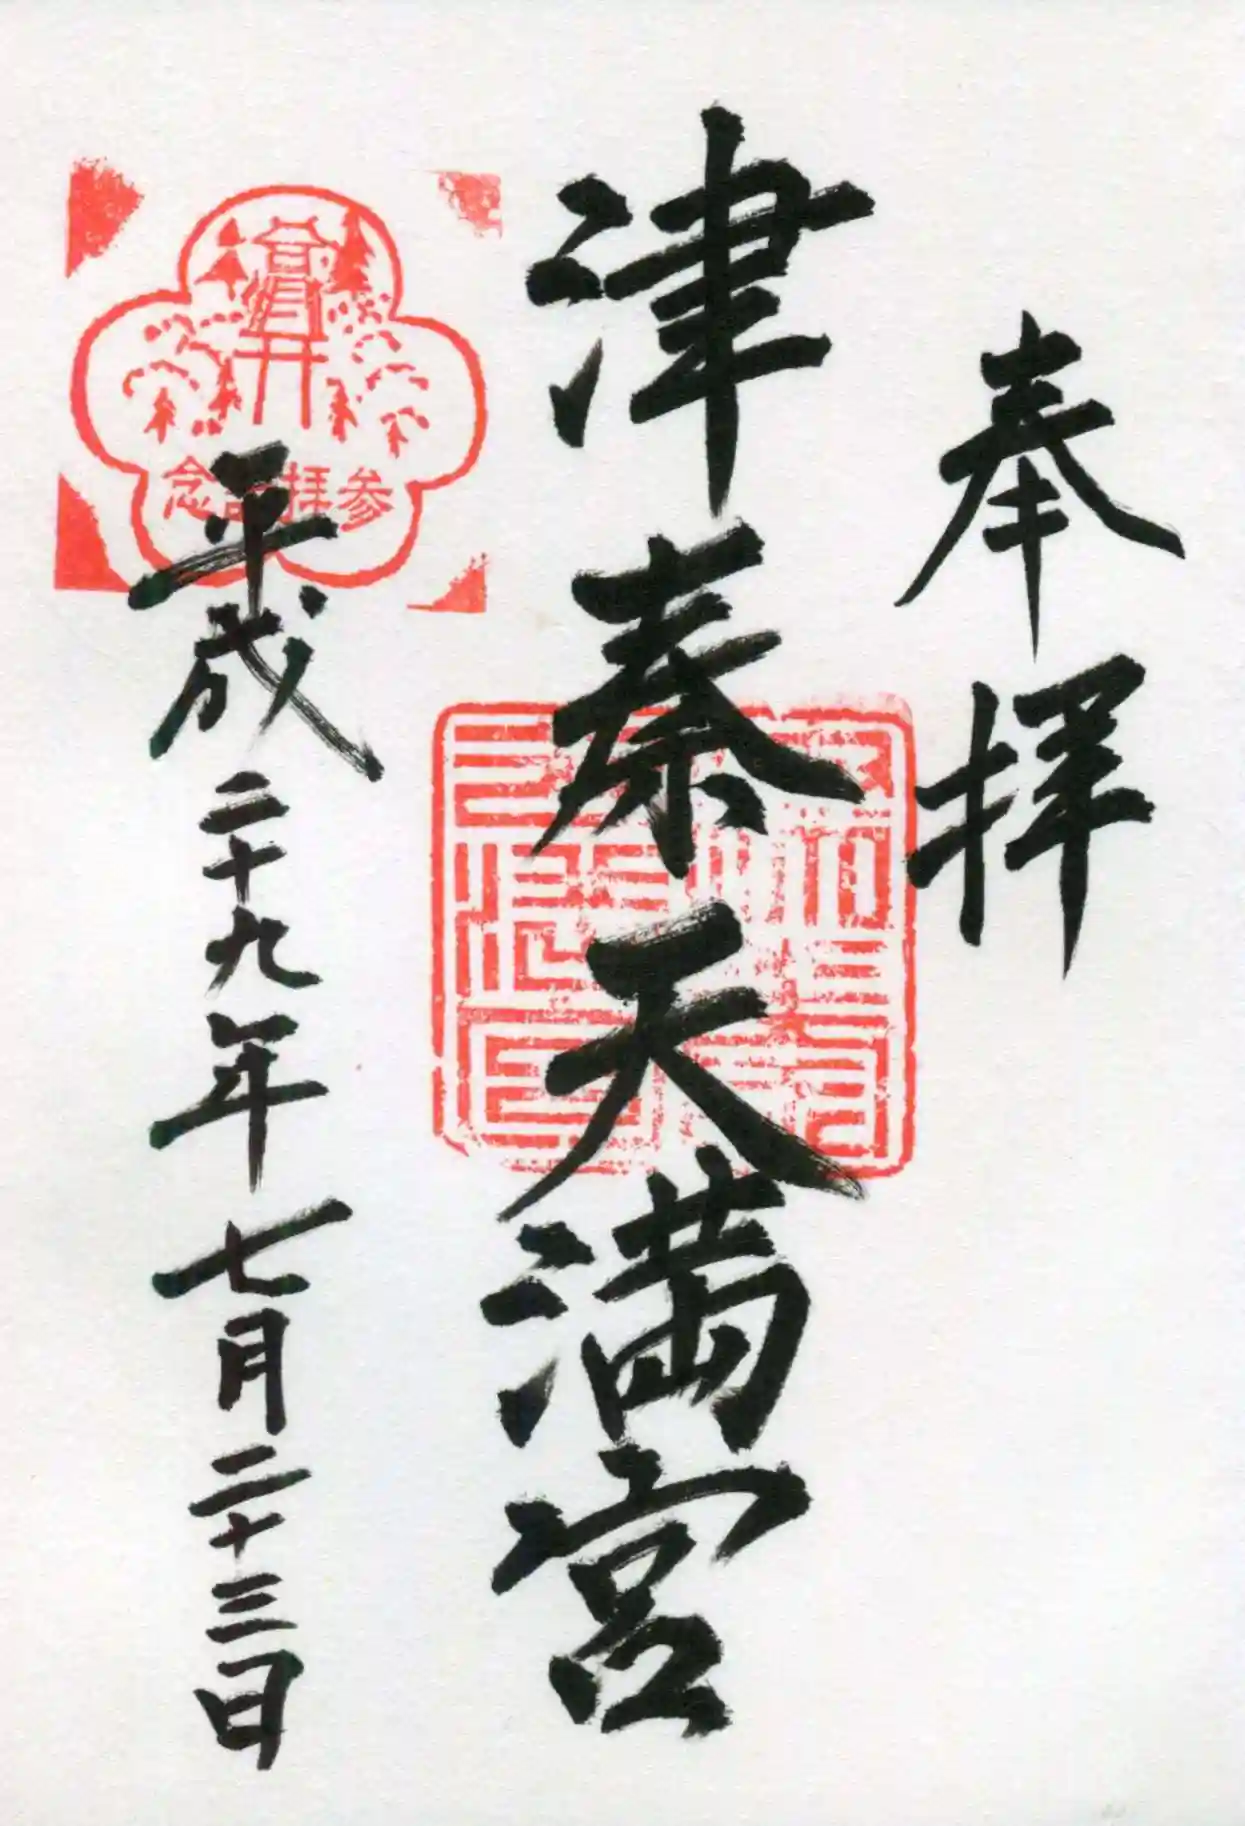 奉拝
津秦天満宮
参拝記念
平成二十九年七月二十三日